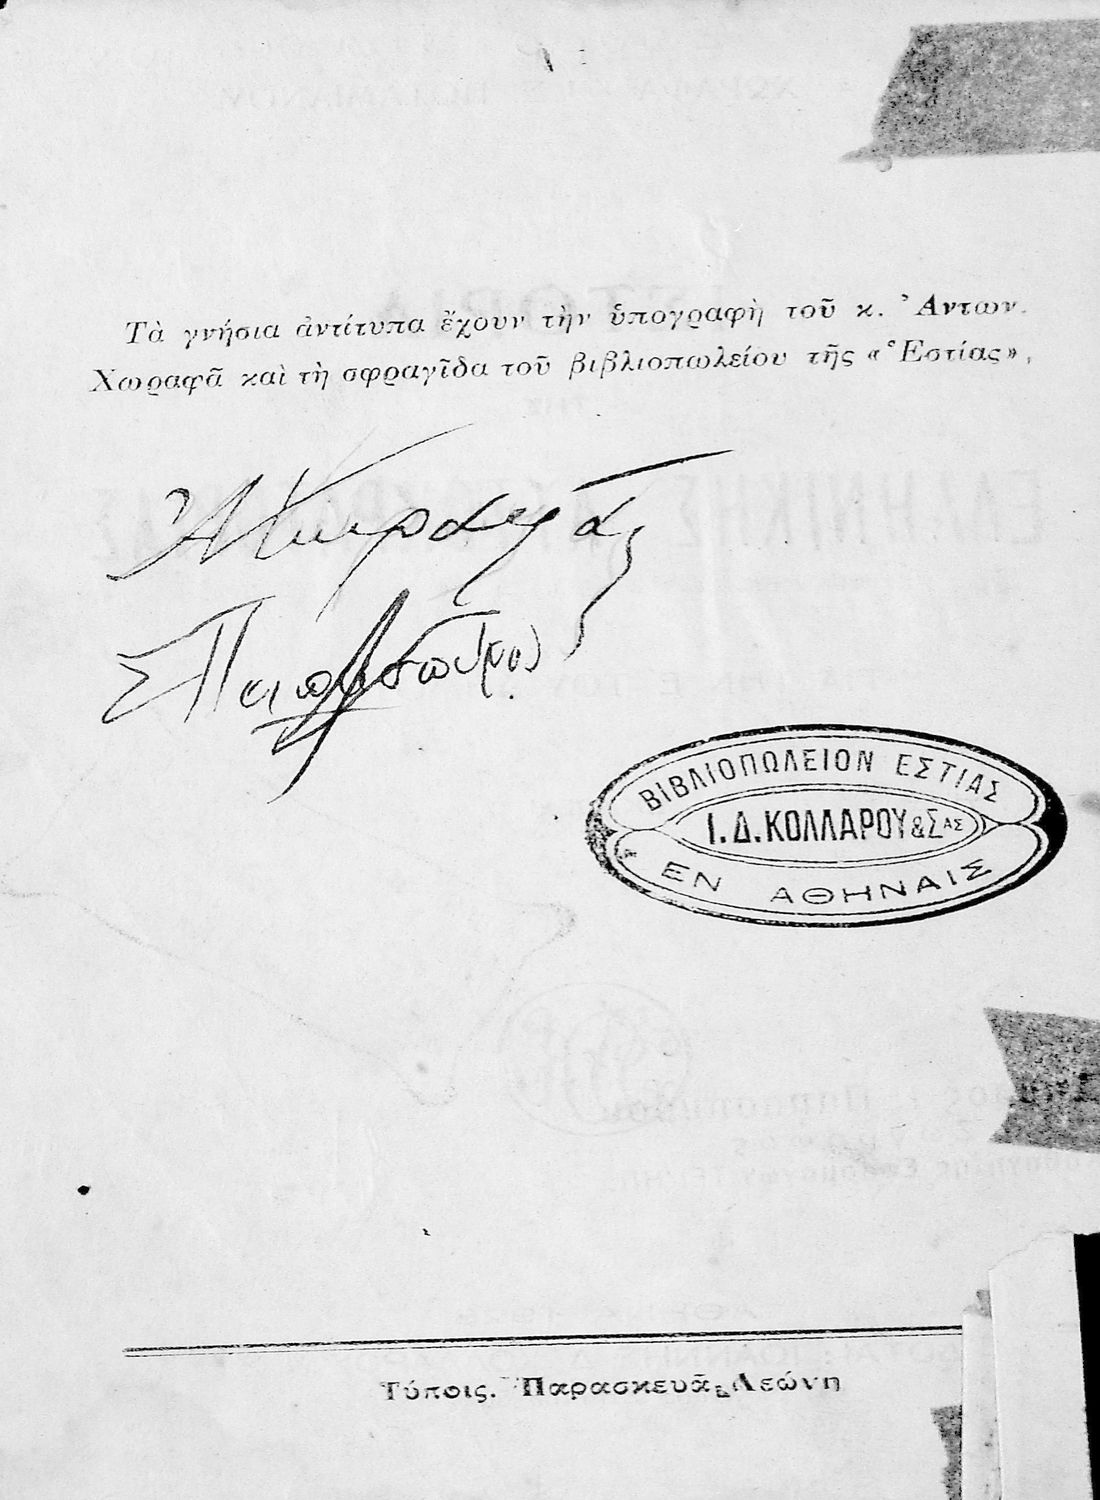 Τὰ γνήσια ἀντίτυπα ἔχουν τὴν ὑπογραφὴ τοῦ κ. Ἀντων.
Χωραφᾶ καὶ τὴ σφραγῖδα τοῦ βιβλιοπωλείου τῆς «Ἑστίας»,
ΒΙΒΛΙΟΠΩΛΕΙΟΝ ΕΣΤΙΑΣ
Ι. Δ. ΚΟΛΛΑΡΟΥ & Σ ΑΣ
ΕΝ ΑΘΗΝΑΙΣ
Τύποις. Παρασκευᾶ Λεώνη